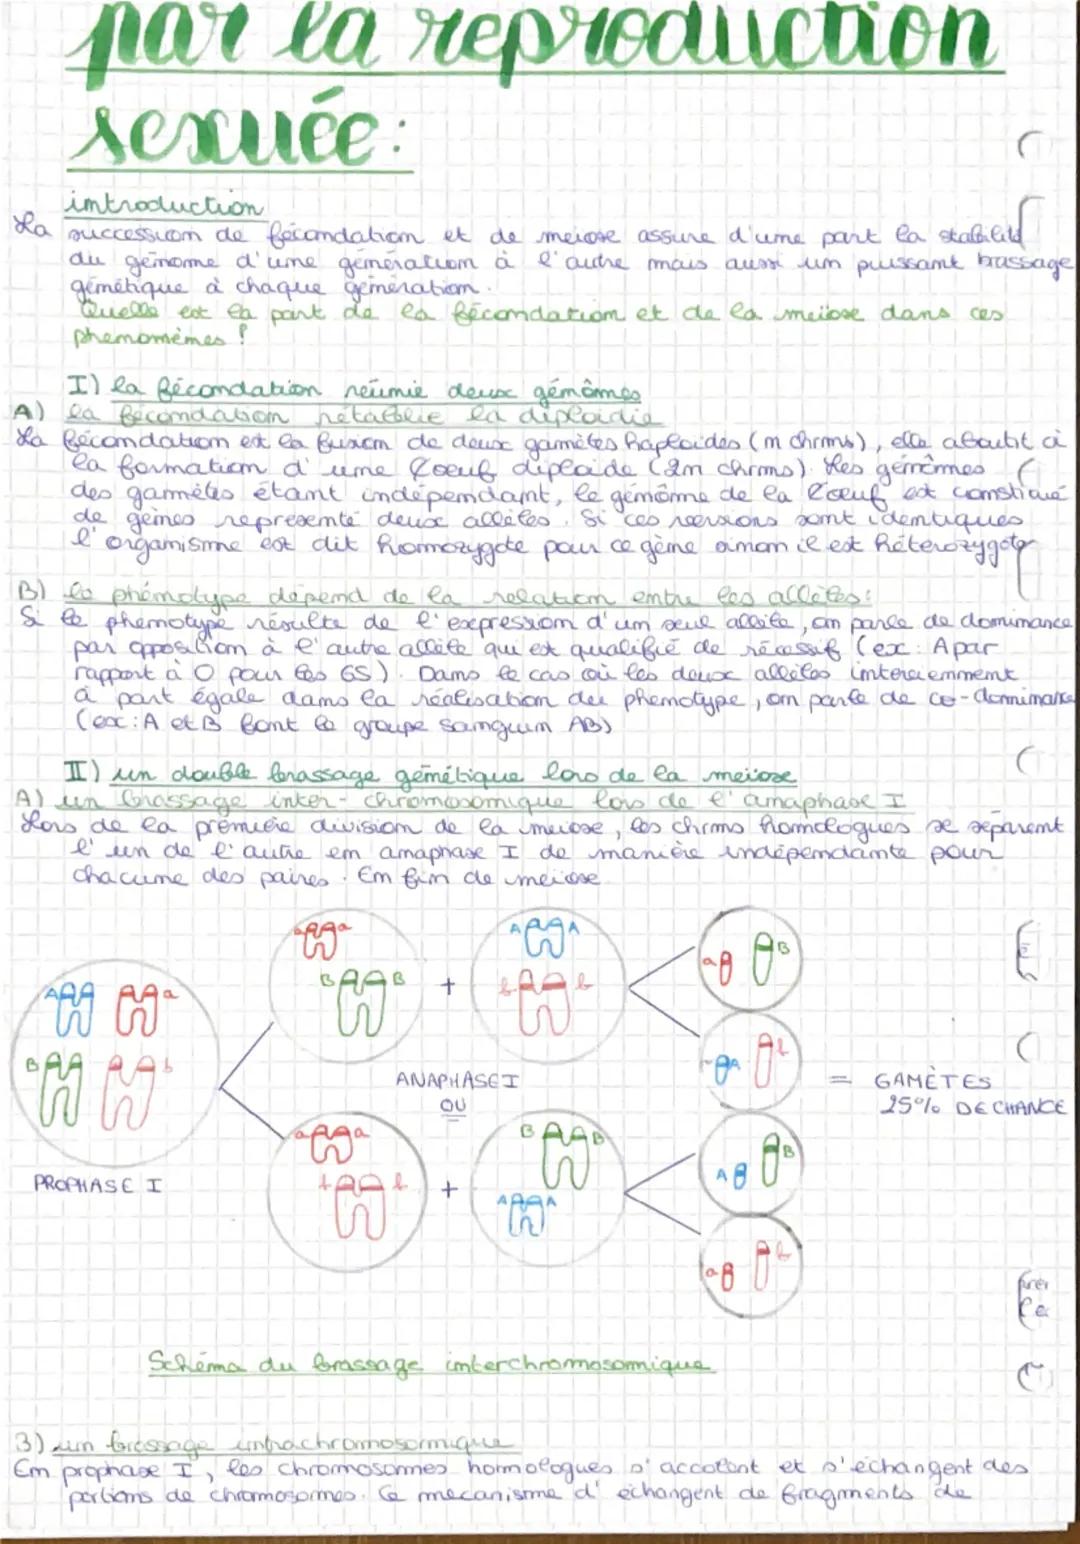 par la reproduction
sexuée:
introduction
La succession de fécondation et de meiose assure d'une part la stabilité
du génome d'une génération à l'autre mais aussi un puissant brassage
génétique à chaque génération.
Quelle est la part de la fécondation et de la meiose dans ces
phénomènes ?
I) la fécondation réunie deux génômes
A) la fécondation rétablie la diploidie
La fécondation est la fusion de deux gamètes haploides (n chrms), elle aboutit à
la formation d'une l'oeuf diploide (2n chrms). Les génômes
des gamètes étant indépendant, le génôme de la l'oeuf est constitué
de gènes représenté deux allèles. Si ces versions sont identiques
l'organisme est dit homozygote pour ce gène sinon il est hétérozygote
B) le phénotype dépend de la relation entre les allèles:
Si le phenotype résulte de l'expression d'un seul allèle, on parle de dominance
par opposition à l'autre allèle qui est qualifié de récessif (ex: A par
rapport à O pour les GS). Dans le cas où les deux allèles interviennent
à part égale dans la réalisation du phenotype, on parle de co-dominance
(ex: A et B font le groupe sanguin AB)
II) un double brassage génétique lors de la meiose
A) un brassage inter-chromosomique lors de l'anaphase I
Lors de la première division de la meiose, les chrms homologues se séparent
l'un de l'autre en anaphase I de manière indépendante pour
chacune des paires. En fin de meiose
a a
A A
a B
B B
+
b b
A a
B b
A b
ANAPHASE I
OU
= GAMÈTES
25% DE CHANCE
a a
B B
A B
PROPHASE I
b b
+
A A
a b
Schéma du brassage interchromosomique
3) un brassage intrachromosomique
En prophase I, les chromosomes homologues s'accolent et s'échangent des
portions de chromosomes. Ce mécanisme d'échangent de fragments de